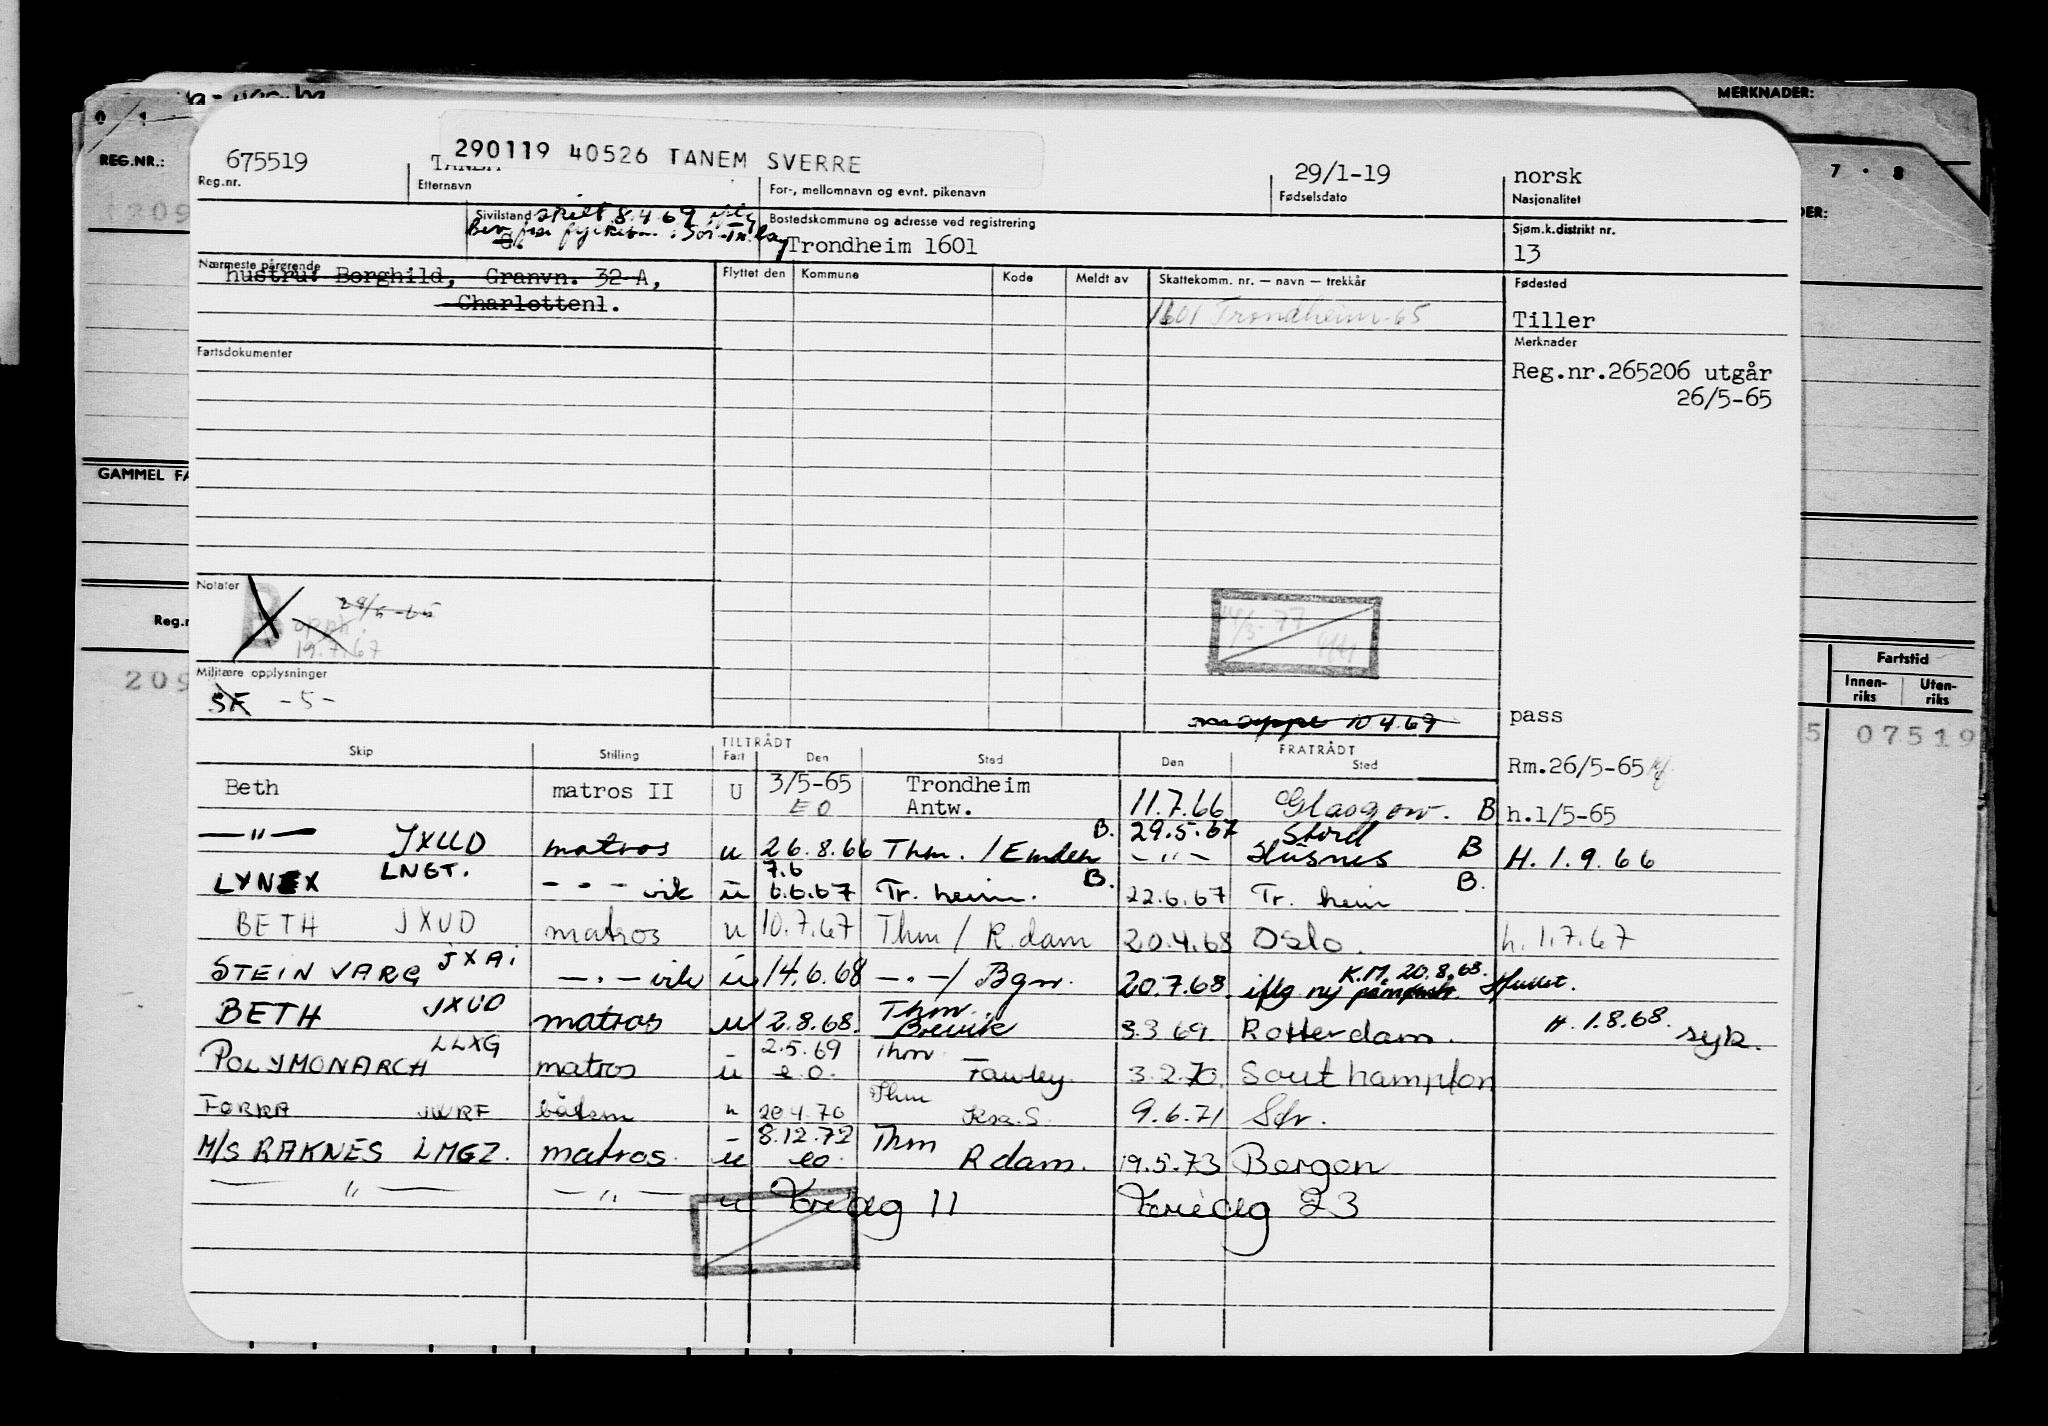 MERKNADER:
REG.NR.:
290119 40526 TANEM SVERRE
675519 29/1-19 norsk 7 · 8
Reg.nr. Etternavn For-, mellomnavn og evnt. pikenavn Fødselsdato Nasjonalitet
209
Sivilstand skilt 8.4.69 iflg Bostedskommune og adresse ved registrering Sjøm.k.distrikt nr.
Bev. fra fylkesm. i Sør-Tr.lag
Trondheim 1601 13
Nærmeste pårørende Flyttet den Kommune Kode Meldt av Skattekomm. nr. — navn — trekkår Fødested
hustru: Borghild, Granvn. 32-A,
Charlottenl. 1601 Trondheim-65 Tiller
Fartsdokumenter Merknader
Reg.nr.265206 utgår
26/5-65
GAMMEL FA
Notater
B 28/5-65
opph
19.7.67
Reg.n
Militære opplysninger
SF -5-
209
Fartstid
Innen-riks Uten-riks
5 07519
mappe 10.4.69 pass
TILTRÅDT FRATRÅDT
Skip Stilling Fart Den Sted Den Sted
Rm.26/5-65
Beth matros II U 3/5-65 Trondheim
EO Antw. 11.7.66 Glasgow. B h.1/5-65
—"— JXUD matros u 26.8.66 Thm. / Emden B. 29.5.67 Stord
-"- Husnes B H. 1.9.66
LYNEX LNGT. - - - vik u 7.6
6.6.67 Tr. heim. B. 22.6.67 Tr. heim B.
BETH JXUD matros u 10.7.67 Thm / R.dam 20.4.68 Oslo. h. 1.7.67
STEIN VARG JXAI —"— vik u 14.6.68 -"-/ Bgn. 20.7.68. iflg ny påmønstr. K.M. 20.8.68.
BETH JXUD matros u 2.8.68. Thm.
Brevik 3.3.69. Rotterdam. H. 1.8.68. syk.
POLYMONARCH LLXG matros u 2.5.69 Thm
e.o. Fawley. 3.2.70. Southampton
FORRA JWRF båtsm u 20.4.70 Thm
9.6.71
M/S RAKNES LMGZ. matros. u 8.12.72 Thm
eo. R dam. 19.5.73 Bergen
—"— —"— u Foredag 11 Foredag 23